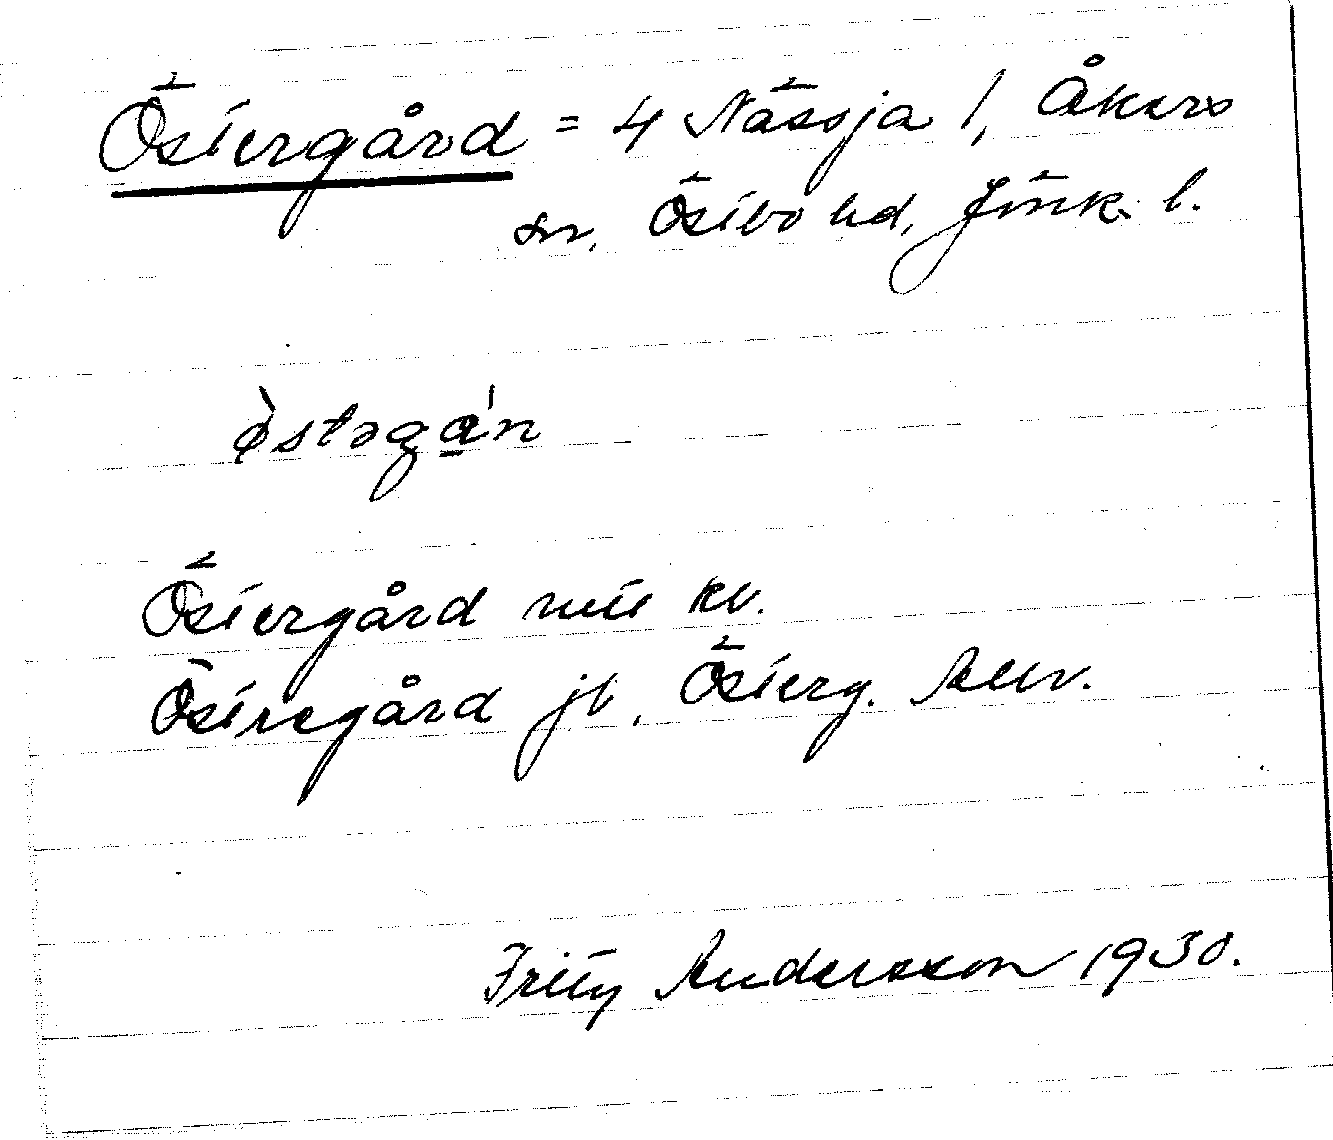 Östergård = 4 Nässja 1, Åkers
sn, Östbo hd, Jönk. l.
ø̀stəga̠'n
Östergård mtl kv.
Östregård jb, Österg.
Fritz Andersson 1930.